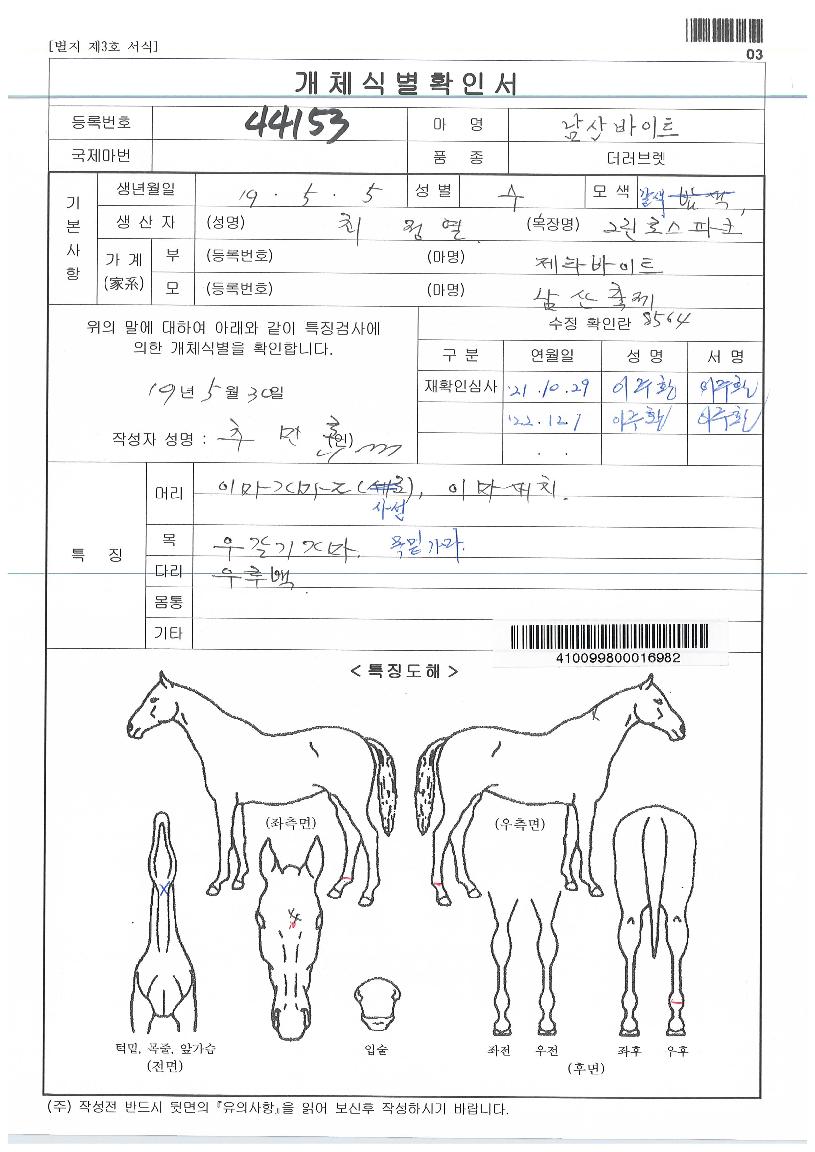 [별지 제3호 서식]
03
개체식별확인서
등록번호 44153 마 명 남산바이트
국제마번 품 종 더러브렛
기본사항
생년월일 19 . 5 . 5 성 별 수 모 색 갈색 밤색
생 산 자 (성명) 최 열 (목장명) 그린로스파크
가 계 (家系) 부 (등록번호) (마명) 제라바이트
모 (등록번호) (마명) 남산축제
위의 말에 대하여 아래와 같이 특징검사에
의한 개체식별을 확인합니다.
19년 5월 30일
작성자 성명 : 추 만 (인)
수정 확인란 8564
구 분 연월일 성 명 서 명
재확인심사 '21.10.29 이주환 이주환
'22.12.7 이주환 이주환
. .
특 징
머리 이마가마조(세로), 이마미치.
사선
목 우갈기가마. 목밑가마.
다리 우후백
몸통
기타
410099800016982
<특징도해>
(좌측면) (우측면)
턱밑, 목줄, 앞가슴 입술 좌전 우전 좌후 우후
(전면) (후면)
(주) 작성전 반드시 뒷면의 『유의사항』을 읽어 보신후 작성하시기 바랍니다.